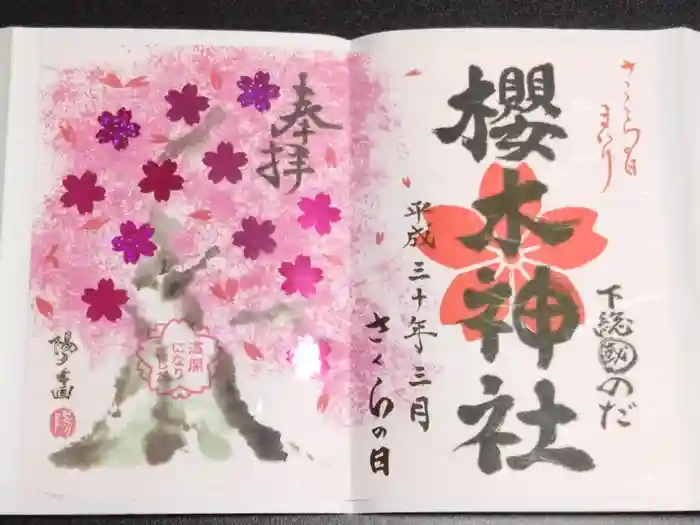 さくらの日
まいり
櫻木神社
下総のだ
平成三十年三月
さくらの日
奉拝
満開
になり
ました